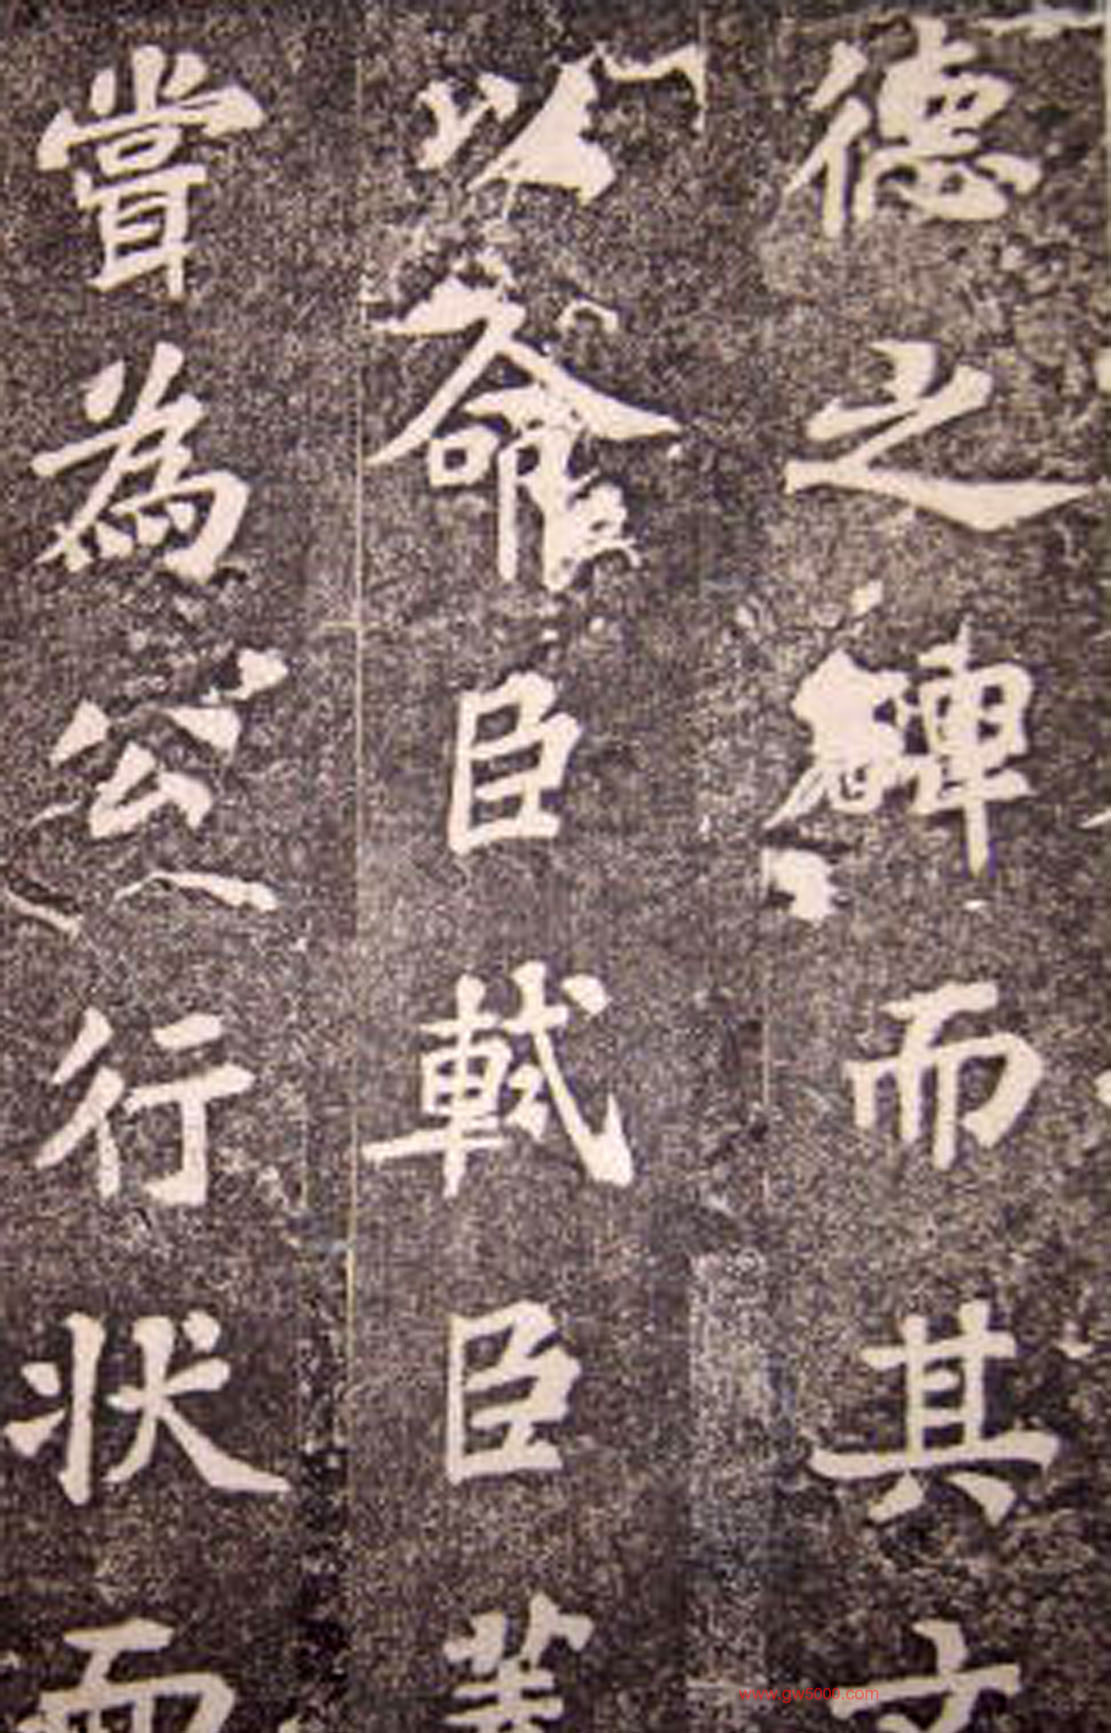 德之碑而其文
以命臣軾臣蓋
嘗為公行狀而
www.gw5000.com